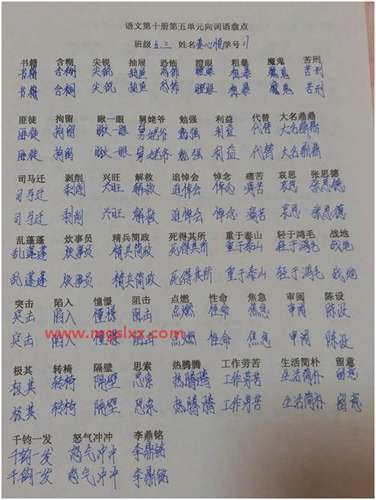 语文第十册第五单元向词语盘点
班级 五.三 姓名 姜心悦 学号 11
书籍 含糊 尖锐 抽屉 恐怖 瞪眼 粗暴 魔鬼 苦刑
书籍 含糊 尖锐 抽屉 恐怖 瞪眼 粗暴 魔鬼 苦刑
书籍 含糊 尖锐 抽屉 恐怖 瞪眼 粗暴 魔鬼 苦刑
匪徒 拘留 瞅一眼 舅姥爷 勉强 利益 代替 大名鼎鼎
匪徒 拘留 瞅一眼 舅姥爷 勉强 利益 代替 大名鼎鼎
匪徒 拘留 瞅一眼 舅姥爷 勉强 利益 代替 大名鼎鼎
司马迁 剥削 兴旺 解救 追悼会 悼念 痛苦 哀思 张思德
司马迁 剥削 兴旺 解救 追悼会 悼念 痛苦 哀思 张思德
司马迁 剥削 兴旺 解救 追悼会 悼念 痛苦 哀思 张思德
乱蓬蓬 炊事员 精兵简政 死得其所 重于泰山 轻于鸿毛 战地
乱蓬蓬 炊事员 精兵简政 死得其所 重于泰山 轻于鸿毛 战地
乱蓬蓬 炊事员 精兵简政 死得其所 重于泰山 轻于鸿毛 战地
突击 陷入 憧憬 阻击 点燃 性命 焦急 审阅 陈设
突击 陷入 憧憬 阻击 点燃 性命 焦急 审阅 陈设
www.mgslxx.com
突击 陷入 憧憬 阻击 点燃 性命 焦急 审阅 陈设
极其 转椅 隔壁 思索 热腾腾 工作劳苦 生活简朴 留意
极其 转椅 隔壁 思索 热腾腾 工作劳苦 生活简朴 留意
极其 转椅 隔壁 思索 热腾腾 工作劳苦 生活简朴 留意
千钧一发 怒气冲冲 李鼎铭
千钧一发 怒气冲冲 李鼎铭
千钧一发 怒气冲冲 李鼎铭